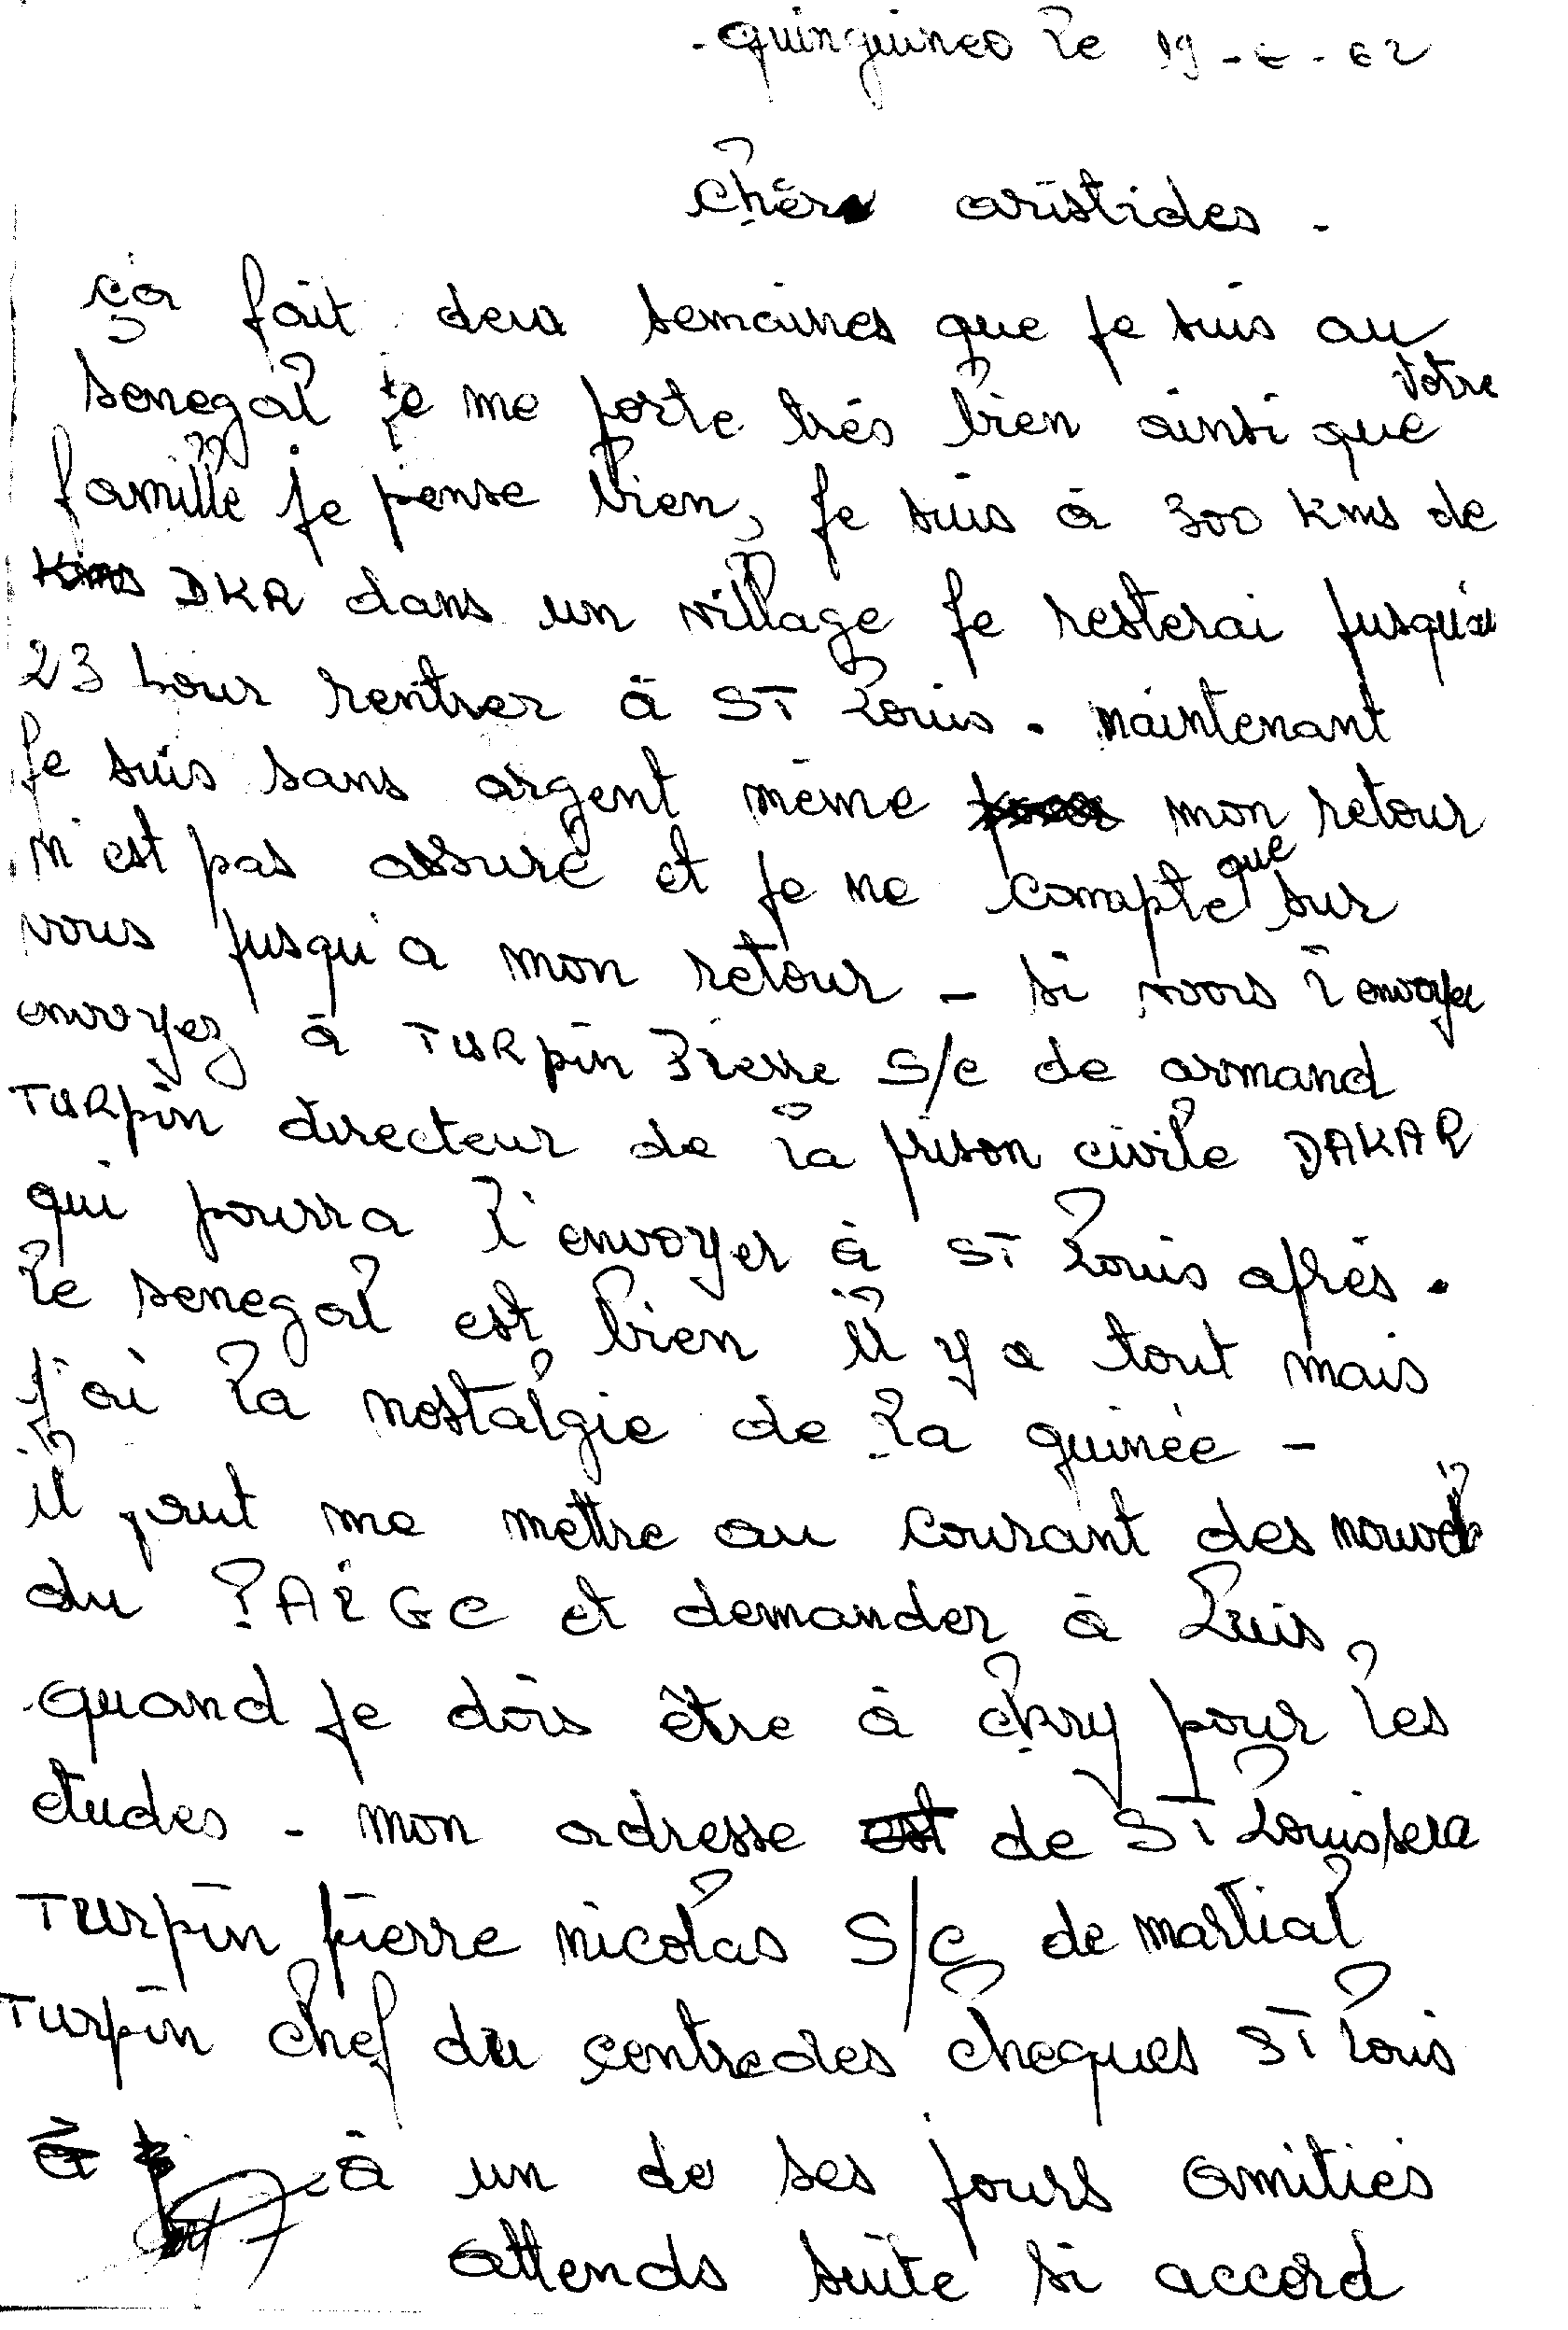 quinguineo le 19-6-62
chèr aristides.
ça fait deux semaines que je suis au
senegal je me porte trés bien ainsi que votre
famille je pense bien, je suis à 300 Kms de
Kms DKR dans un village je resterai jusqu'au
23 pour rentrer à ST Louis. maintenant
je suis sans argent même pour mon retour
n'est pas assuré et je ne compte que sur
vous jusqu'a mon retour - si vous l'envoyer
envoyez à TURpin Pierre S/c de armand
TURpin directeur de la prison civile DAKAR
qui pourra l'envoyer à ST Louis aprés.
le senegal est bien il y a tout mais
j'ai la nostalgie de la guinée -
il peut me mettre au courant des nouvel
du PAIGC et demander à Luis,
quand je dois être à ckry pour les
etudes - mon adresse est de ST Louis sera
Turpin pierre nicolas S/c de martial
Turpin chef du centre des cheques ST Louis
à un de ses jours amitiés
attends suite si accord